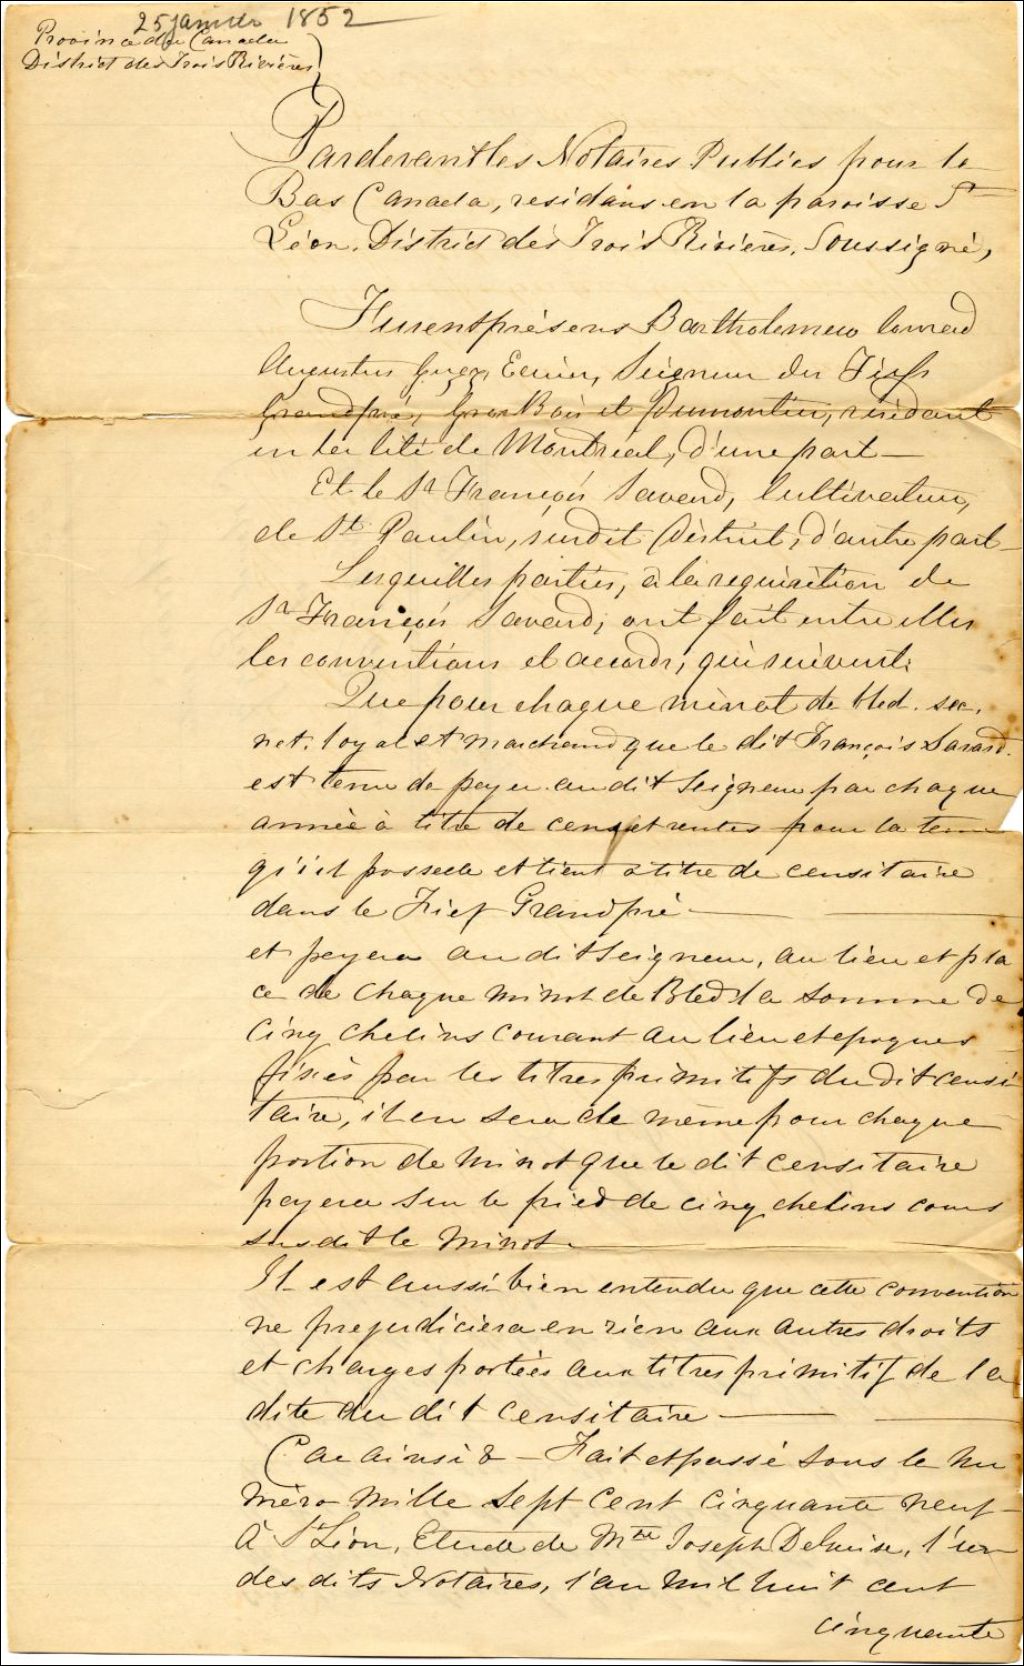 25 janvier 1852
Province du Canada
District des Trois Rivières
Pardevant les Notaires Publics pour le
Bas Canada, residans en la paroisse St
Léon, District des Trois Rivières, Soussigné,
Furent présens Bartholemew Conrad
Augustus Gugy, Ecuier, Seigneur des Fiefs
Grandpré, Gros Bois et Dumontier, résidant
en la Cité de Montréal, d'une part —
Et le Sr François Savard, Cultivateur,
de St Paulin, susdit District, d'autre part —
Lesquelles parties, à la requisition de
Sr François Savard, ont fait entre elles
les conventions et accords, qui suivent:
Que pour chaque minot de bled. sec,
net. loyal et marchand que le dit François Savard.
est tenu de payer audit Seigneur par chaque
année à titre de cens et rentes pour la terre
qu'il possede et tient à titre de censitaire
dans le Fief Grandpré —
et payera au dit Seigneur, au lieu et pla
ce de chaque minot de Bled la somme de
cinq chelins courant au lieu et epoques
fixés par les titres primitifs du dit censi
taire, il en sera de même pour chaque
portion de minot que le dit censitaire
payera sur le pied de cinq chelins cours
susdit le minot —
Il est aussi bien entendu que cette convention
ne prejudiciera en rien aux autres droits
et charges portées aux titres primitif de la
dite du dit Censitaire —
Car ainsi & — Fait et passé sous le nu
méro mille sept cent cinquante neuf
À St Léon, Etude de Mtre Joseph Deguise, l'un
des dits Notaires, l'an mil huit cent
cinquante